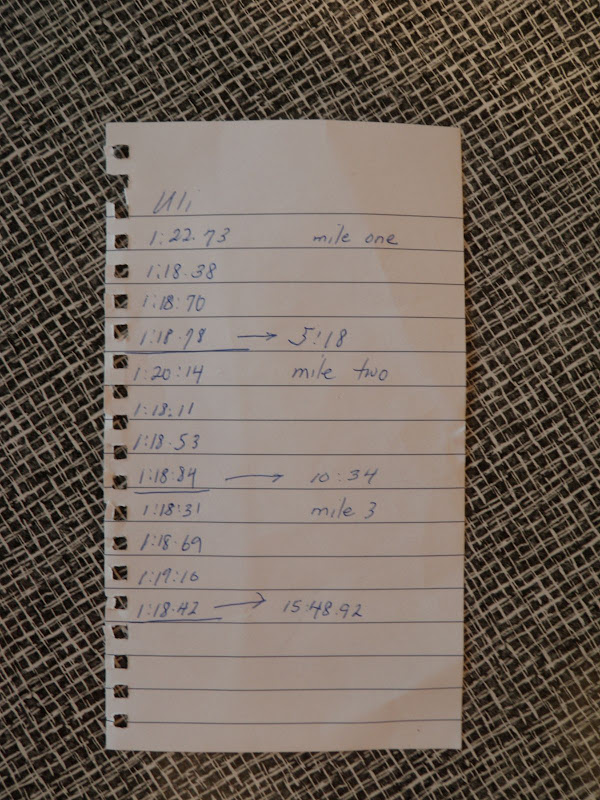 1:22.73 mile one
1:18.38
1:18:70
1:18.78 → 5:18
1:20:14 mile two
1:18:11
1:18.53
1:18:84 → 10:34
1:18:31 mile 3
1:18.69
1:19:16
1:18.42 → 15:48.92